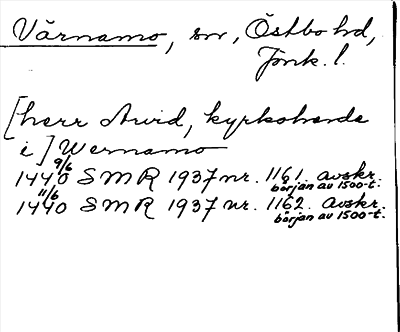 Värnamo, sn, Östbo hd,
Jönk. l.
[herr Arvid, kyrkoherde
i] Wernamo
1440 9/6 SMR 1937 nr. 1161. avskr.
början av 1500-t.
1440 11/6 SMR 1937 nr. 1162. avskr.
början av 1500-t.